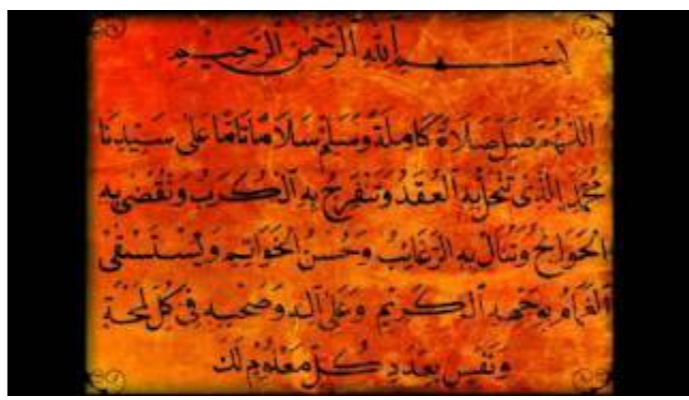 بِسْمِ اللهِ الرَّحْمٰنِ الرَّحِيْمِ
اللّٰهُمَّ صَلِّ صَلَاةً كَامِلَةً وَسَلِّمْ سَلَامًا تَامًّا عَلٰى سَيِّدِنَا
مُحَمَّدِ الَّذِيْ تَنْحَلُّ بِهِ الْعُقَدُ وَتَنْفَرِجُ بِهِ الْكُرَبُ وَتُقْضٰى بِهِ
الْحَوَائِجُ وَتُنَالُ بِهِ الرَّغَائِبُ وَحُسْنُ الْخَوَاتِمِ وَيُسْتَسْقَى
الْغَمَامُ بِوَجْهِهِ الْكَرِيْمِ وَعَلٰى آلِهِ وَصَحْبِهِ فِيْ كُلِّ لَمْحَةٍ
وَنَفَسٍ بِعَدَدِ كُلِّ مَعْلُوْمٍ لَكَ